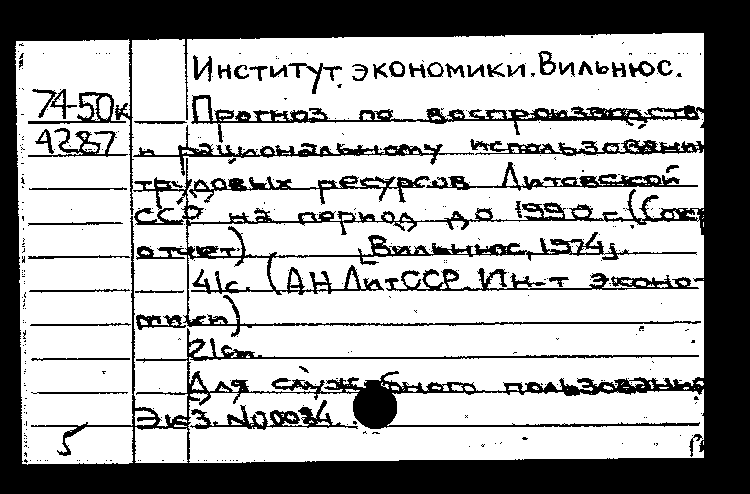 Институт экономики. Вильнюс.
74-50к Прогноз по воспроизводству
4287 и рациональному использовани
трудовых ресурсов Литовской
ССР на период до 1990 г. (Сокр
отчет) [Вильнюс, 1974].
41с. (АН ЛитССР. Ин-т эконо-
мики).
21см.
Для служебного пользования
Экз. N00034.
5